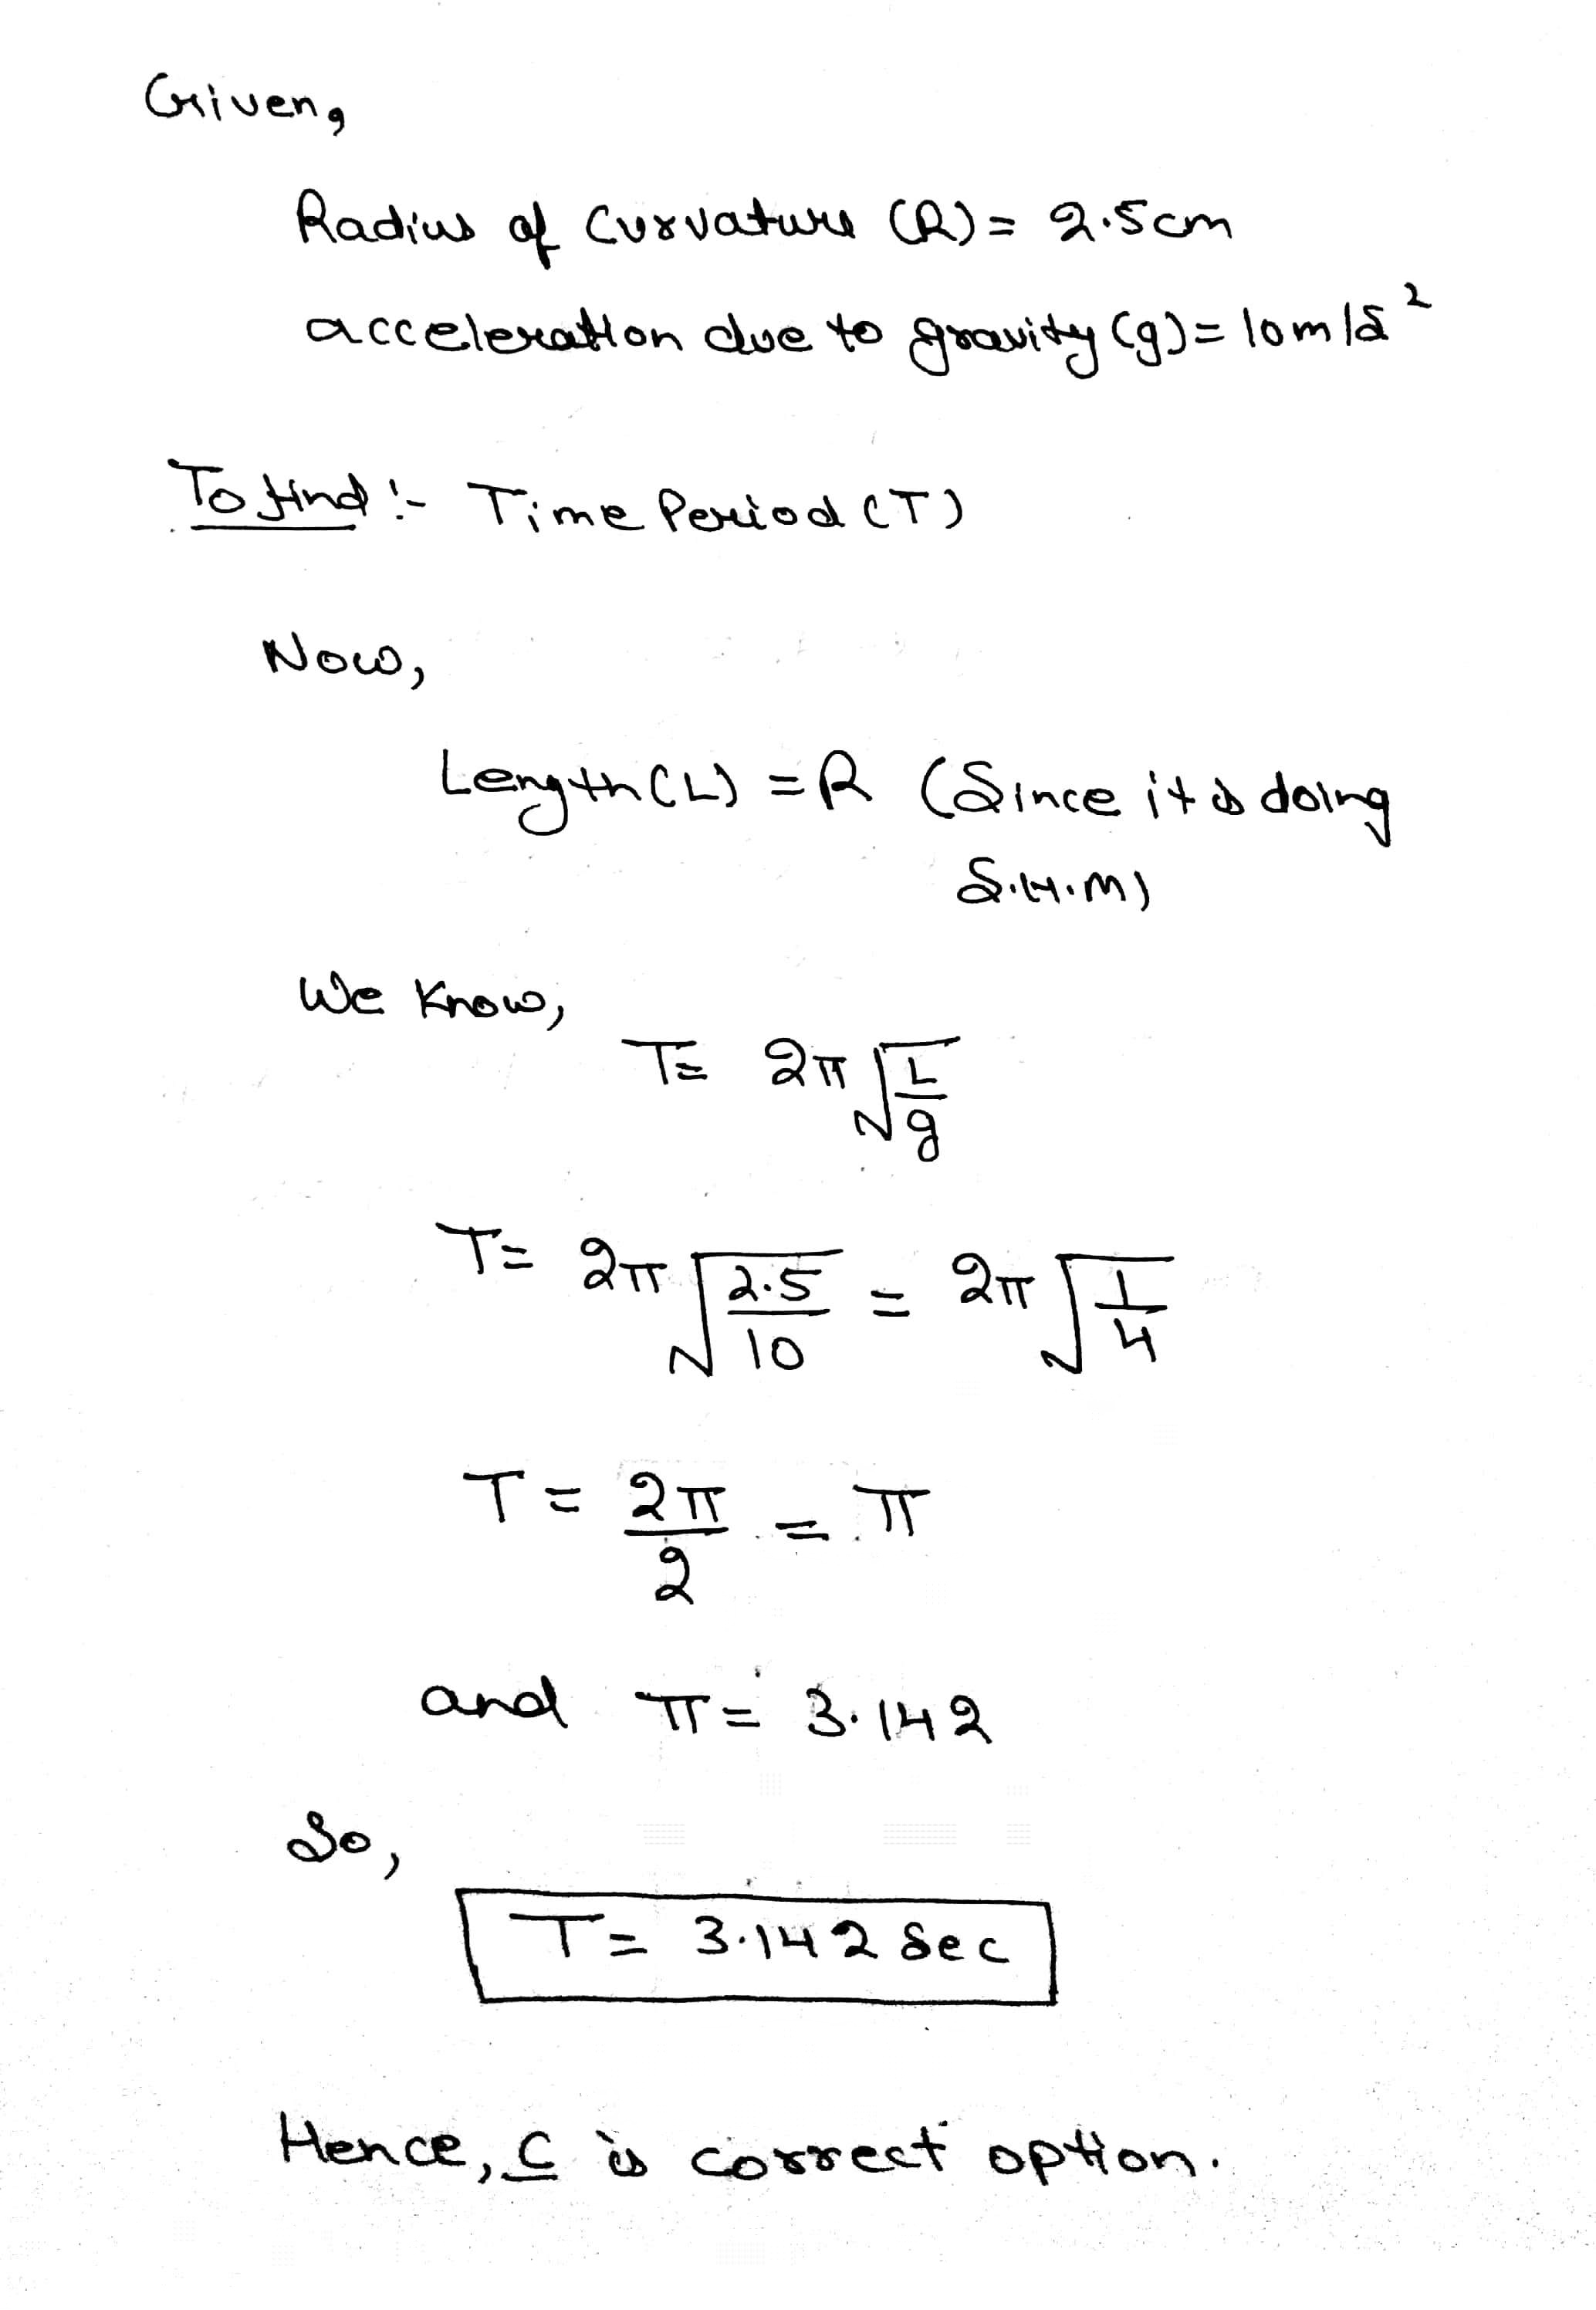 Given,
Radius of Curvature (R) = 2.5cm
acceleration due to gravity (g) = 10m/s²
To find :- Time Period (T)
Now,
Length (L) = R (Since it is doing
S.H.M)
We Know,
T = 2π √(L/g)
T = 2π √(2.5/10) = 2π √(1/4)
T = 2π/2 = π
and π = 3.142
So,
T = 3.142 Sec
Hence, C is correct option.